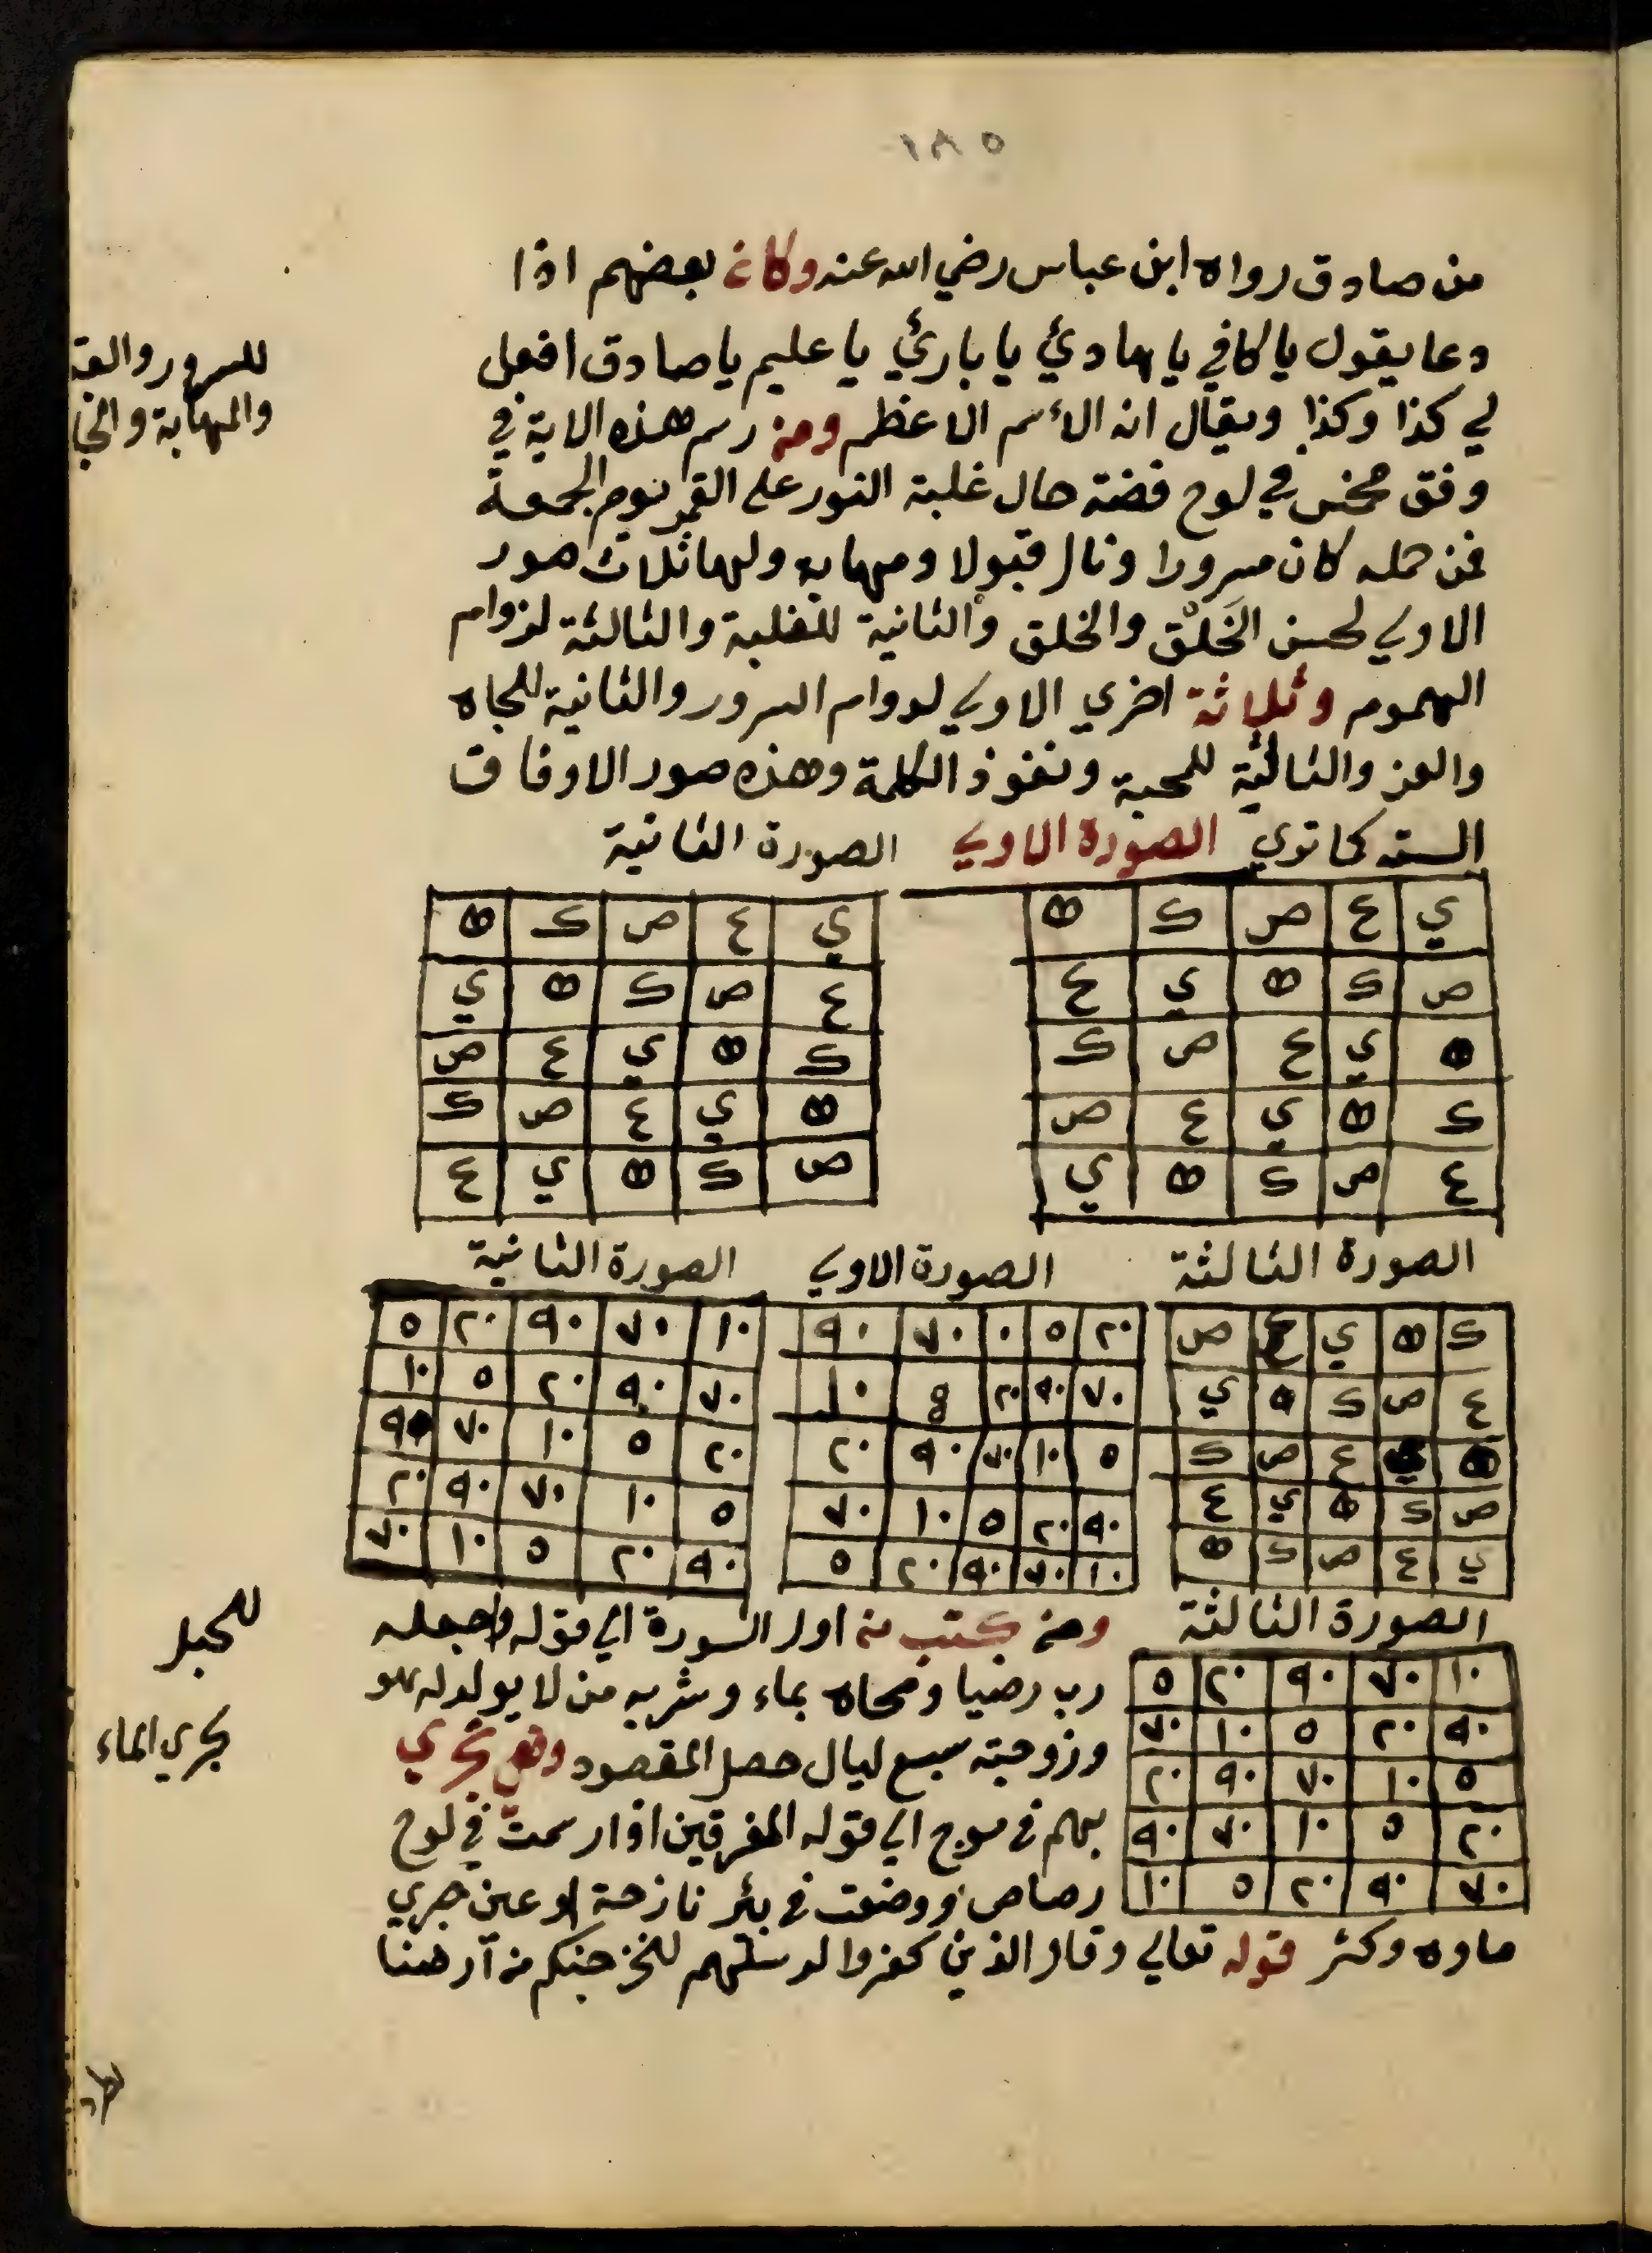 ١٨٥
من صادق رواه ابن عباس رضي الله عنه وكان بعضهم اذا
دعا يقول يا كافي يا هادئ يا بارئ يا عليم يا صادق افعل
لي كذا وكذا ويقال انه الأسم الاعظم ومن رسم هذه الاية في
وفق مخمس في لوح فضة حال غلبة النور على القمر يوم الجمعة
فمن حمله كان مسرورا ونال قبولا ومهابه ولها ثلاث صور
الاولي لحسن الخَلْق والخلق والثانية للغلبة والثالثة لزوام
الهموم وثلاثة اخري الاولي لدوام السرور والثانية للجاه
والعز والثالثة للمحبة ونفوذ الكلمة وهذه صور الاوفاق
الستة كما تري الصورة الاولي الصورة الثانية
ي ع ص ك ه
ص ك ه ي ع
ه ي ع ص ك
ك ه ي ع ص
ع ص ك ه ي
ي ع ص ك ه
ع ص ك ه ي
ك ه ي ع ص
ه ي ع ص ك
ص ك ه ي ع
الصورة الثالثة الصورة الاولي الصورة الثانية
ك ه ي ع ص
ع ص ك ه ي
ه ي ع ص ك
ص ك ه ي ع
ي ع ص ك ه
٢٠ ٥ ٠ ٧٠ ٩٠
٧٠ ٩٠ ٢٠ 8 ١٠
٥ ١٠ ٧٠ ٩٠ ٢٠
٩٠ ٢٠ ٥ ١٠ ٧٠
١٠ ٧٠ ٩٠ ٢٠ ٥
١٠ ٧٠ ٩٠ ٢٠ ٥
٧٠ ٩٠ ٢٠ ٥ ١٠
٢٠ ٥ ١٠ ٧٠ ٩٠
٥ ١٠ ٧٠ ٩٠ ٢٠
٩٠ ٢٠ ٥ ١٠ ٧٠
الصورة الثالثة
١٠ ٧٠ ٩٠ ٢٠ ٥
٩٠ ٢٠ ٥ ١٠ ٧٠
٥ ١٠ ٧٠ ٩٠ ٢٠
٢٠ ٥ ١٠ ٧٠ ٩٠
٧٠ ٩٠ ٢٠ ٥ ١٠
ومن كتب من اول السورة الي قوله واجعله
رب رضيا ومحاه بماء وشربه من لا يولد له هو
وزوجته سبع ليال حصل المقصود وهي تجري
بهم في موج الي قوله المغرقين اذا رسمت في لوح
رصاص ووضعت في بئر نازحة او عين جري
ماوه وكثر قوله تعالي وقال الذين كفروا لرسلهم لنخرجنكم من آرضنا
للسرور والقبـ
والمهابة والجا
للحبل
يجري الماء